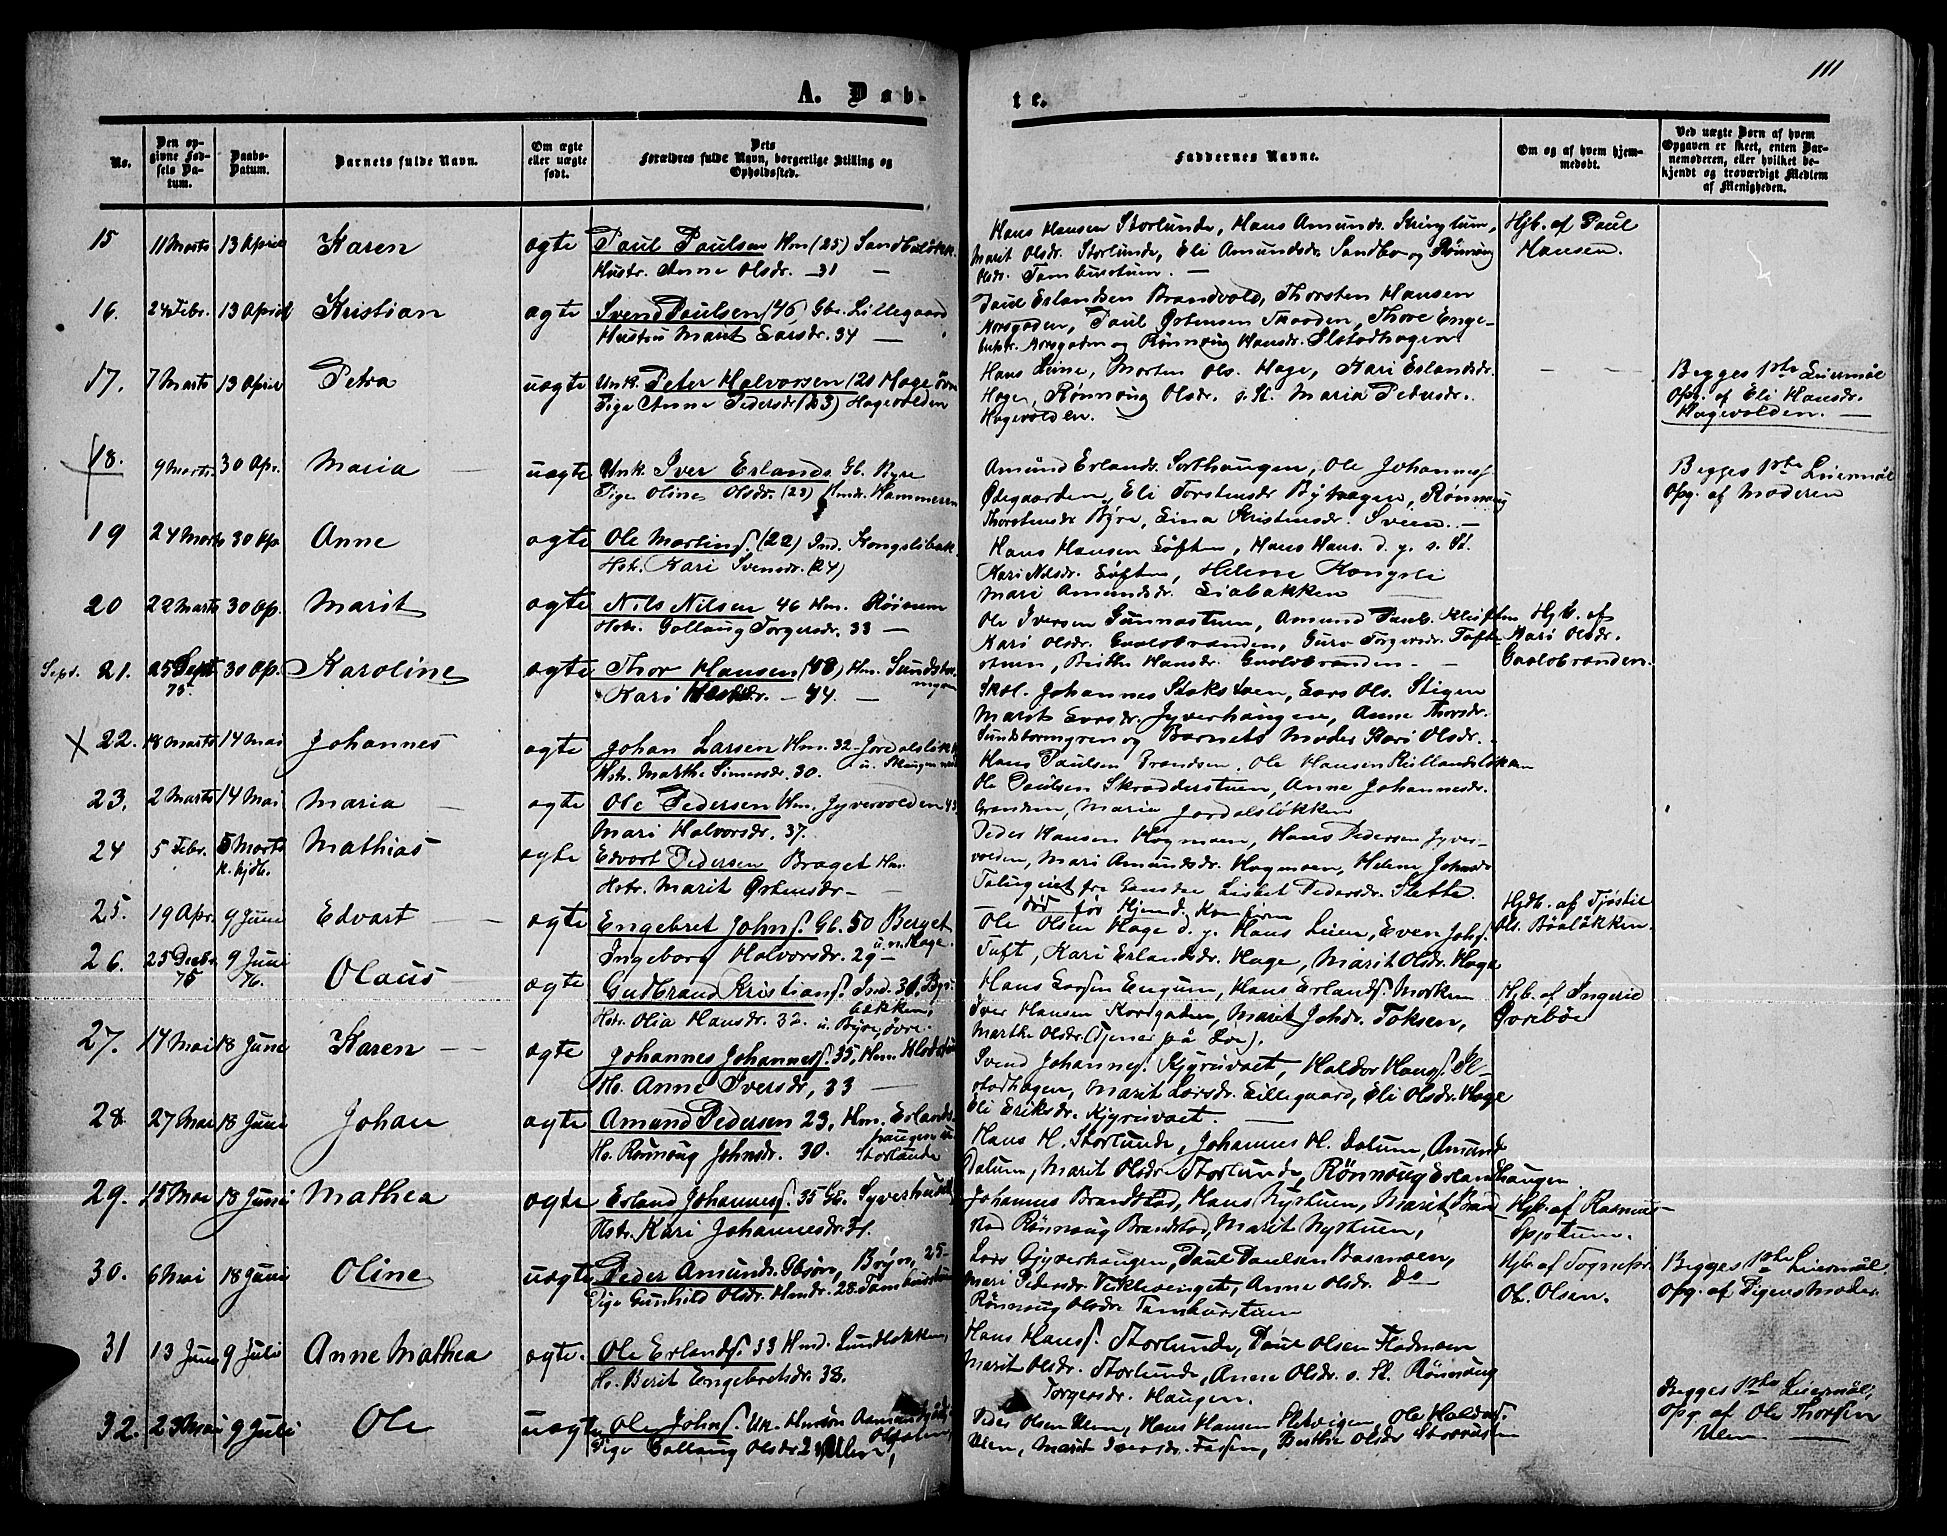 111
A. Døb-
te.
No.
Den op-
givne Fød-
sels Da-
tum.
Daabs-
Datum.
Barnets fulde Navn.
Om ægte
eller uægte
født.
Dets
Forældres fulde Navn, borgerlige Stilling og
Opholdssted.
Faddernes Navne.
Om og af hvem hjem-
medøbt.
Ved uægte Børn af hvem
Opgaven er skeet, enten Bar-
nemoderen, eller hvilket be-
kjendt og troværdigt Medlem
af Menigheden.
15 11 Marts 13 April Karen ægte Paul Paulsen Hm (25)
Hustr. Anne Olsdr. - 31 -
Hans Hansen Storlunde, Hans Amunds.
Marit Olsdr. Storlunde, Eli Amundsdr. Sandbo og Rönnaug
Olsdr. Tamburstuen. -
Hjb. af Paul
Hansen.
16. 24 Febr. 13 April Kristian ægte Svend Paulsen (46) Gbr. Lillegaard
Hustru Marit Larsdr. 34 -
Paul Erlandsen Brandvold, Thorsten Hansen
Morsgaden, Paul Østensen Skaaden, Thore Enge-
Morsgaden og Rönnaug Hansdr. Slstadhagen
17. 7 Marts 13 April Petra uægte Unk. Peter Halvorsen (21 Hage øvre
Pige Anne Pedersdr (23) Hagevolden
Hans Liine, Morten Ols. Hage, Kari Erlandsdr.
Hage, Rönnaug Olsdr. s. St. Maria Pedersdr.
Hagevolden.
Begges 1ste Leiermål
Opg. af Eli Hansdr.
Hagevolden. -
18. 9 Marts 30 Apr. Maria uægte Unk. Iver Erlands. Gb. Byre
Pige Oline Olsdr. (23) Hmdr. Hammeren
Amund Erlands. Sorthaugen, Ole Johannes.
Ødegaarden, Eli Torstensdr Byhagen, Rönnaug
Thorstensdr Byre, Lina Kristensdr. Sveen. -
Begges 1ste Leiermål
Opg. af Moderen
19 24 Marts 30 Ap. Anne ægte Ole Martins. (22) Ind. Kongslibak.
Hstr. Kari Svensdr. (24)
Hans Hansen Løften, Hans Hans. d. y. s. St.
Kari Nilsdr. Løften, Helene Kongsli
Mari Amundsdr. Liabakken
20 22 Marts 30 Ap. Marit ægte Nils Nilsen 46 Hm. Röisum
Hstr. Gollaug Torgersdr. 33 -
Ole Iversen Gunnastuen, Amund Paul. Kliften
Kari Olsdr. Gulobranden, Guro Torgersdr. Tofte
stuen, Berthe Hansdr. Gulobranden -
Hjb. af
Kari Olsdr.
Gulobranden.
Sept. 21. 25 Sept 75 30 Ap. Karoline ægte Thor Hansen (48) Hm. Sundstor-
mgen
Kari Olsdr. - 44. -
Skol. Johannes Stoksveen, Lars Ols. Stigen
Marit Larsdr. Jyverhaugen, Anne Thorsdr.
Sundstormyren og Barnets Moder Kari Olsdr. -
22. 18 Marts 14 Mai Johannes ægte Johan Larsen Hm. 32. Jordalsløkk.
Hstr. Marthe Simensdr. 30.
Hans Paulsen Brandsen, Ole Hansen
Ole Paulsen Skradderstuen, Anne Johannesdr.
Granden, Maria Jordalsløkken
23. 2 Marts 14 Mai Maria ægte Ole Pedersen Hm. Jyvervolden 43
Mari Halvorsdr. 37.
Peder Hansen Hogmoen, Hans Pedersen Jyver-
volden, Mari Amundsdr. Hogmoen, Helene Johns
24 5 Febr. 5 Marts
k. hjdb. Mathias ægte Edvart Pedersen Braget Hm.
Hstr. Marit Østensdr -
Lisbet Pedersdr. Slette.
død før Hjemd. Konfirm
25. 19 Apr. 9 Juni Edvart ægte Engebret Johns. Gb. 50 Berget
u. n. Hage.
Ingeborg Halvorsdr. 29 -
Ole Olsen Hage d. y. Hans Liien, Even Johs.
Tuft, Kari Erlandsdr. Hage, Marit Olsdr. Hage
Hjdb. af Tjøstil
Ols. Böaløkken.
26. 25 Decbr. 75 9 Juni 76. Olaus ægte Gudbrand Kristians. Ind. 31, By-
bakken,
Hstr. Olia Hansdr. 32 u. Byre, øvre.
Hans Larsen Engum, Hans Erlands. Morken
Iver Hansen Kordgaden, Marit Johdr. Toksen,
Marthe Olsdr. (Tjener på Loe).
Hjb. af Ingerid
Övrebøe
27. 14 Mai 18 Juni Karen ægte Johannes Johannes. 35, Hm.
Hs. Anne Iversdr, 33 -
Svend Johannes. Kjyrisvæet, Haldor Hans. Sl-
stadhagen, Marit Larsdr. Lillegaard, Eli Olsdr. Hage
Eli Eriksdr. Kjyrisvæet. -
28. 27 Mai 18 Juni Johan ægte Amund Pedersen 23, Hm. Erlands-
haugen u.
Hs. Rönnaug Johnsdr. 30. Storlunde
Hans H. Storlunde, Johannes H. Dalum, Amund
Dalum, Marit Olsdr. Storlunde, Rönnaug Erlandshaugen.
29. 15 Mai 18 Juni Mathea ægte Erland Johannes. 35 Gb. Syverhus
Hstr. Kari Johannesdr. 31.
Johannes Brandstad, Hans Nystuen, Marit Brand-
stad Rönnaug Brandstad, Marit Nystuen,
Hjb. af Rasmus
Spjotum.
30. 6 Mai 18 Juni Oline uægte Peder Amunds. Gbsön, Böyn, 25 -
Pige Gunhild Olsdr. Hmdr. 28. Tamburstuen
Lars Gyverhaugen, Paul Paulsen Basmoen,
Mari Pedersdr. Viklevenget, Anne Olsdr. Do -
Rönnaug Olsdr Tamburstuen
Hjb. af Sognepr.
Ol. Olsen.
Begges 1ste Leiermål.
Opg. af Pigens Moder.
31 13 Juni 9 Juli Anne Mathea ægte. Ole Erlands. 33 Hmd. Lundløkken,
Hs. Berit Engebretsdr. 38.
Hans Hans. Storlunde, Paul Olsen Flodmoen
Marit Olsdr. Storlunde, Anne Olsdr. s. St. Rönnaug
Torgersdr. Haugen.
32. 23 Mai 9 Juli Ole uægte Ole Johns. Un.
Pige Gollaug Olsdr. Ulen,
Peder Olsen Ulen, Hans Hansen Sletvigen, Ole Haldors.
Ulen, Marit Iversdr. Berthe Olsdr
Begges 1ste Leiermål,
Opg. af Ole Thorsen
Ulen -